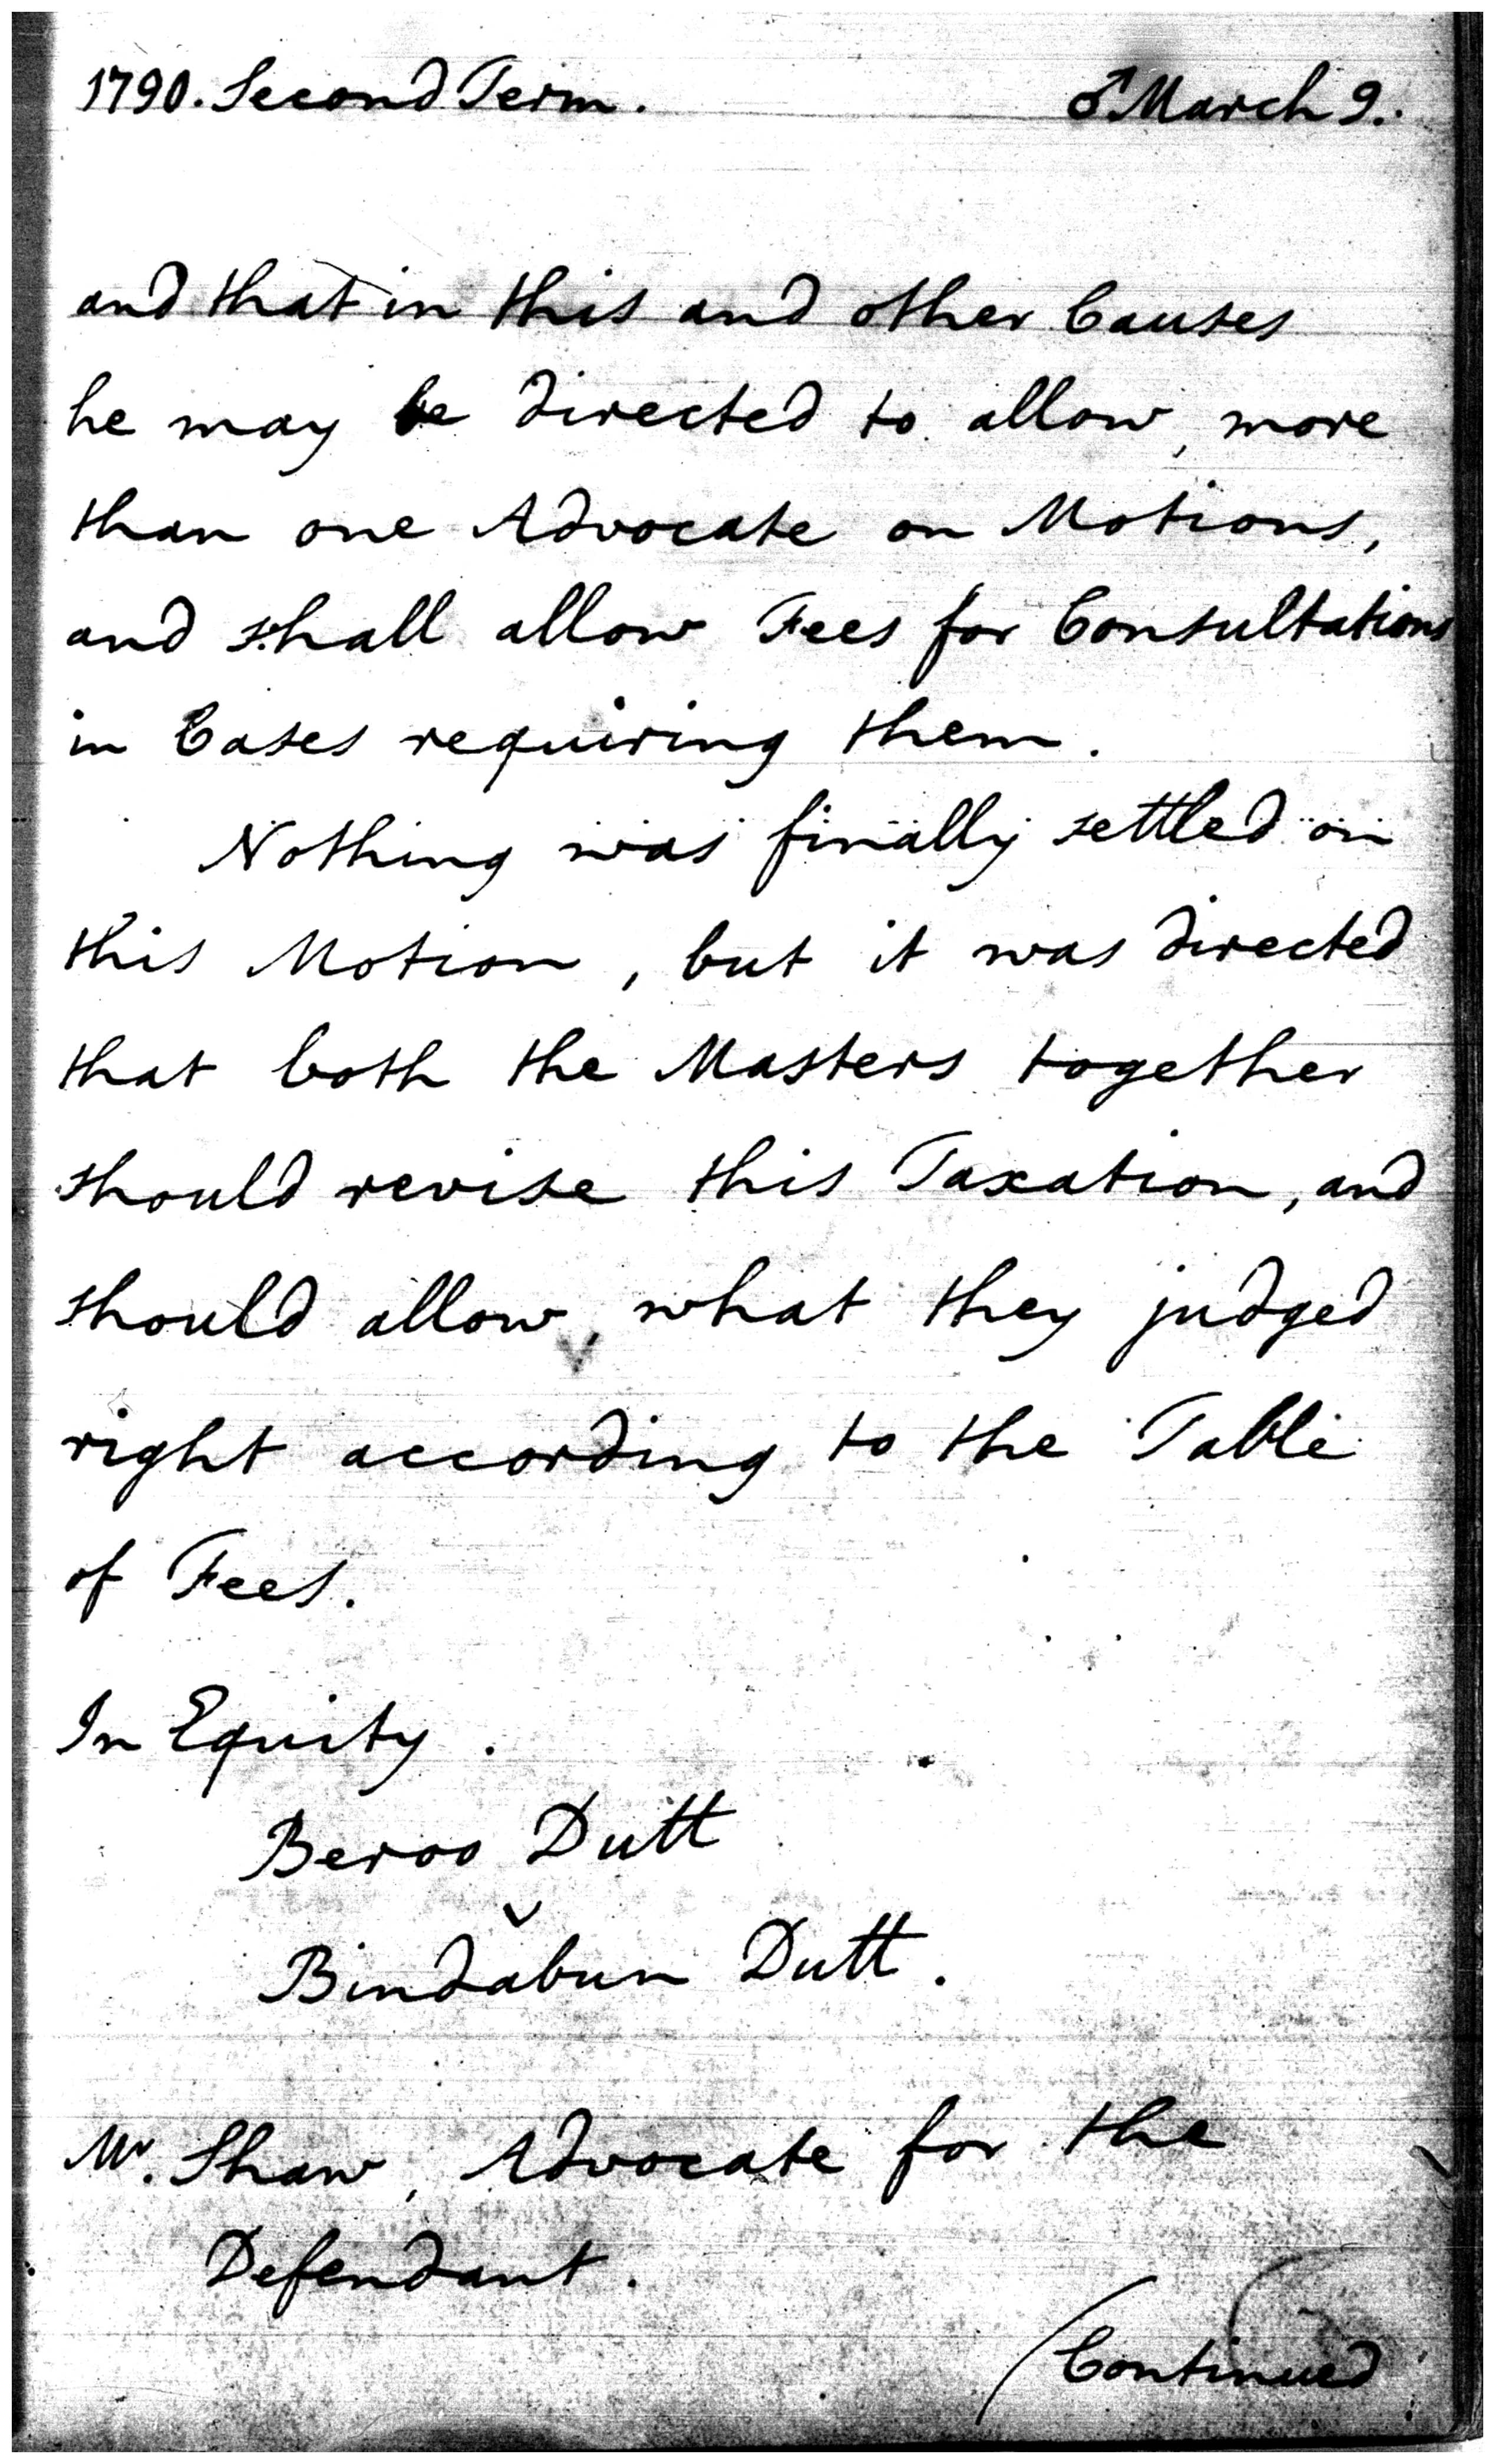 1790. Second Term. ♂ March 9.
and that in this and other Causes
he may be directed to allow, more
than one Advocate on Motions,
and shall allow Fees for Consultations
in Cases requiring them.
Nothing was finally settled on
this Motion, but it was directed
that both the Masters together
should revise this Taxation, and
should allow, what they judged
right according to the Table
of Fees.
In Equity.
Beroo Dutt
v
Bindabun Dutt.
Mr. Shaw, Advocate for the
Defendant.
(Continued